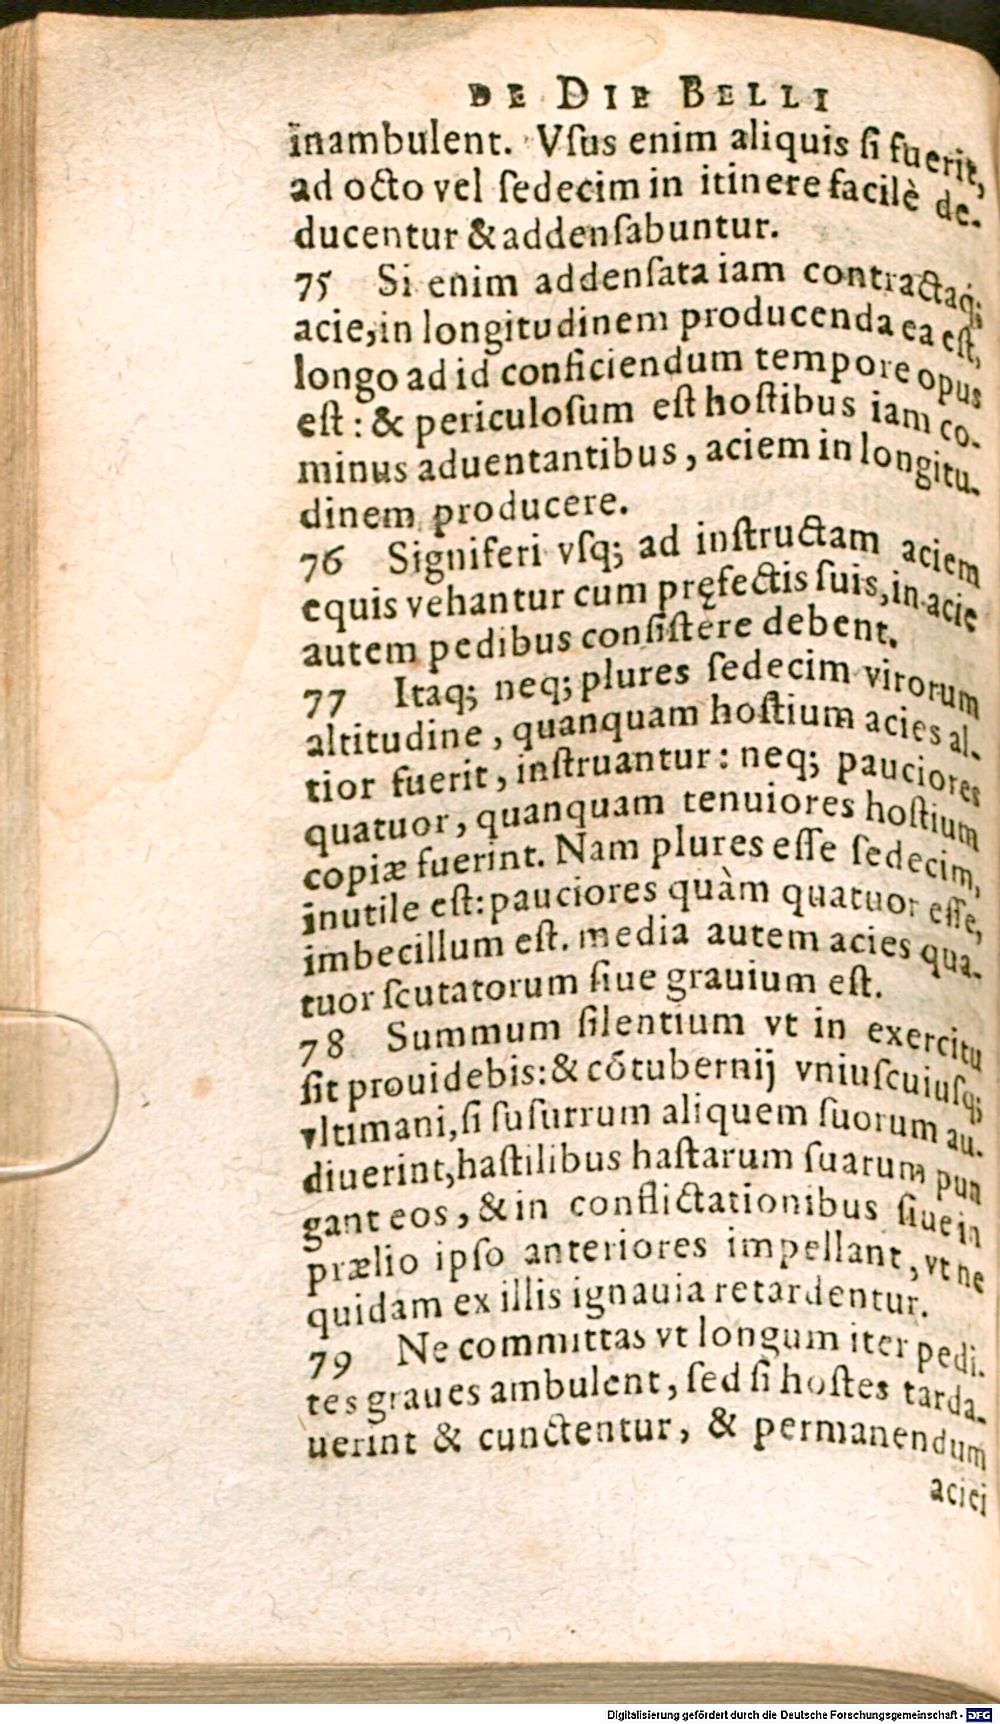 DE DIE BELLI
inambulent. Vſus enim aliquis ſi fuerit,
ad octo vel ſedecim in itinere facilè de-
ducentur & addenſabuntur.
75 Si enim addenſata iam contractaq́;
acie, in longitudinem producenda ea eſt,
longo ad id conficiendum tempore opus
eſt: & periculoſum eſt hoſtibus iam co-
minus aduentantibus, aciem in longitu-
dinem producere.
76 Signiferi vſq; ad inſtructam aciem
equis vehantur cum pręfectis ſuis, in acie
autem pedibus conſiſtere debent.
77 Itaq; neq; plures ſedecim virorum
altitudine, quanquam hoſtium acies al-
tior fuerit, inſtruantur: neq; pauciores
quatuor, quanquam tenuiores hoſtium
copiæ fuerint. Nam plures eſſe ſedecim,
inutile eſt: pauciores quàm quatuor eſſe,
imbecillum eſt. media autem acies qua-
tuor ſcutatorum ſiue grauium eſt.
78 Summum ſilentium vt in exercitu
ſit prouidebis: & cõtubernij vniuſcuiuſq;
vltimani, ſi ſuſurrum aliquem ſuorum au-
diuerint, haſtilibus haſtarum ſuarum pun
gant eos, & in conflictationibus ſiue in
prælio ipſo anteriores impellant, vt ne
quidam ex illis ignauia retardentur.
79 Ne committas vt longum iter pedi-
tes graues ambulent, ſed ſi hoſtes tarda-
uerint & cunctentur, & permanendum
aciei
Digitalisierung gefördert durch die Deutsche Forschungsgemeinschaft - DFG